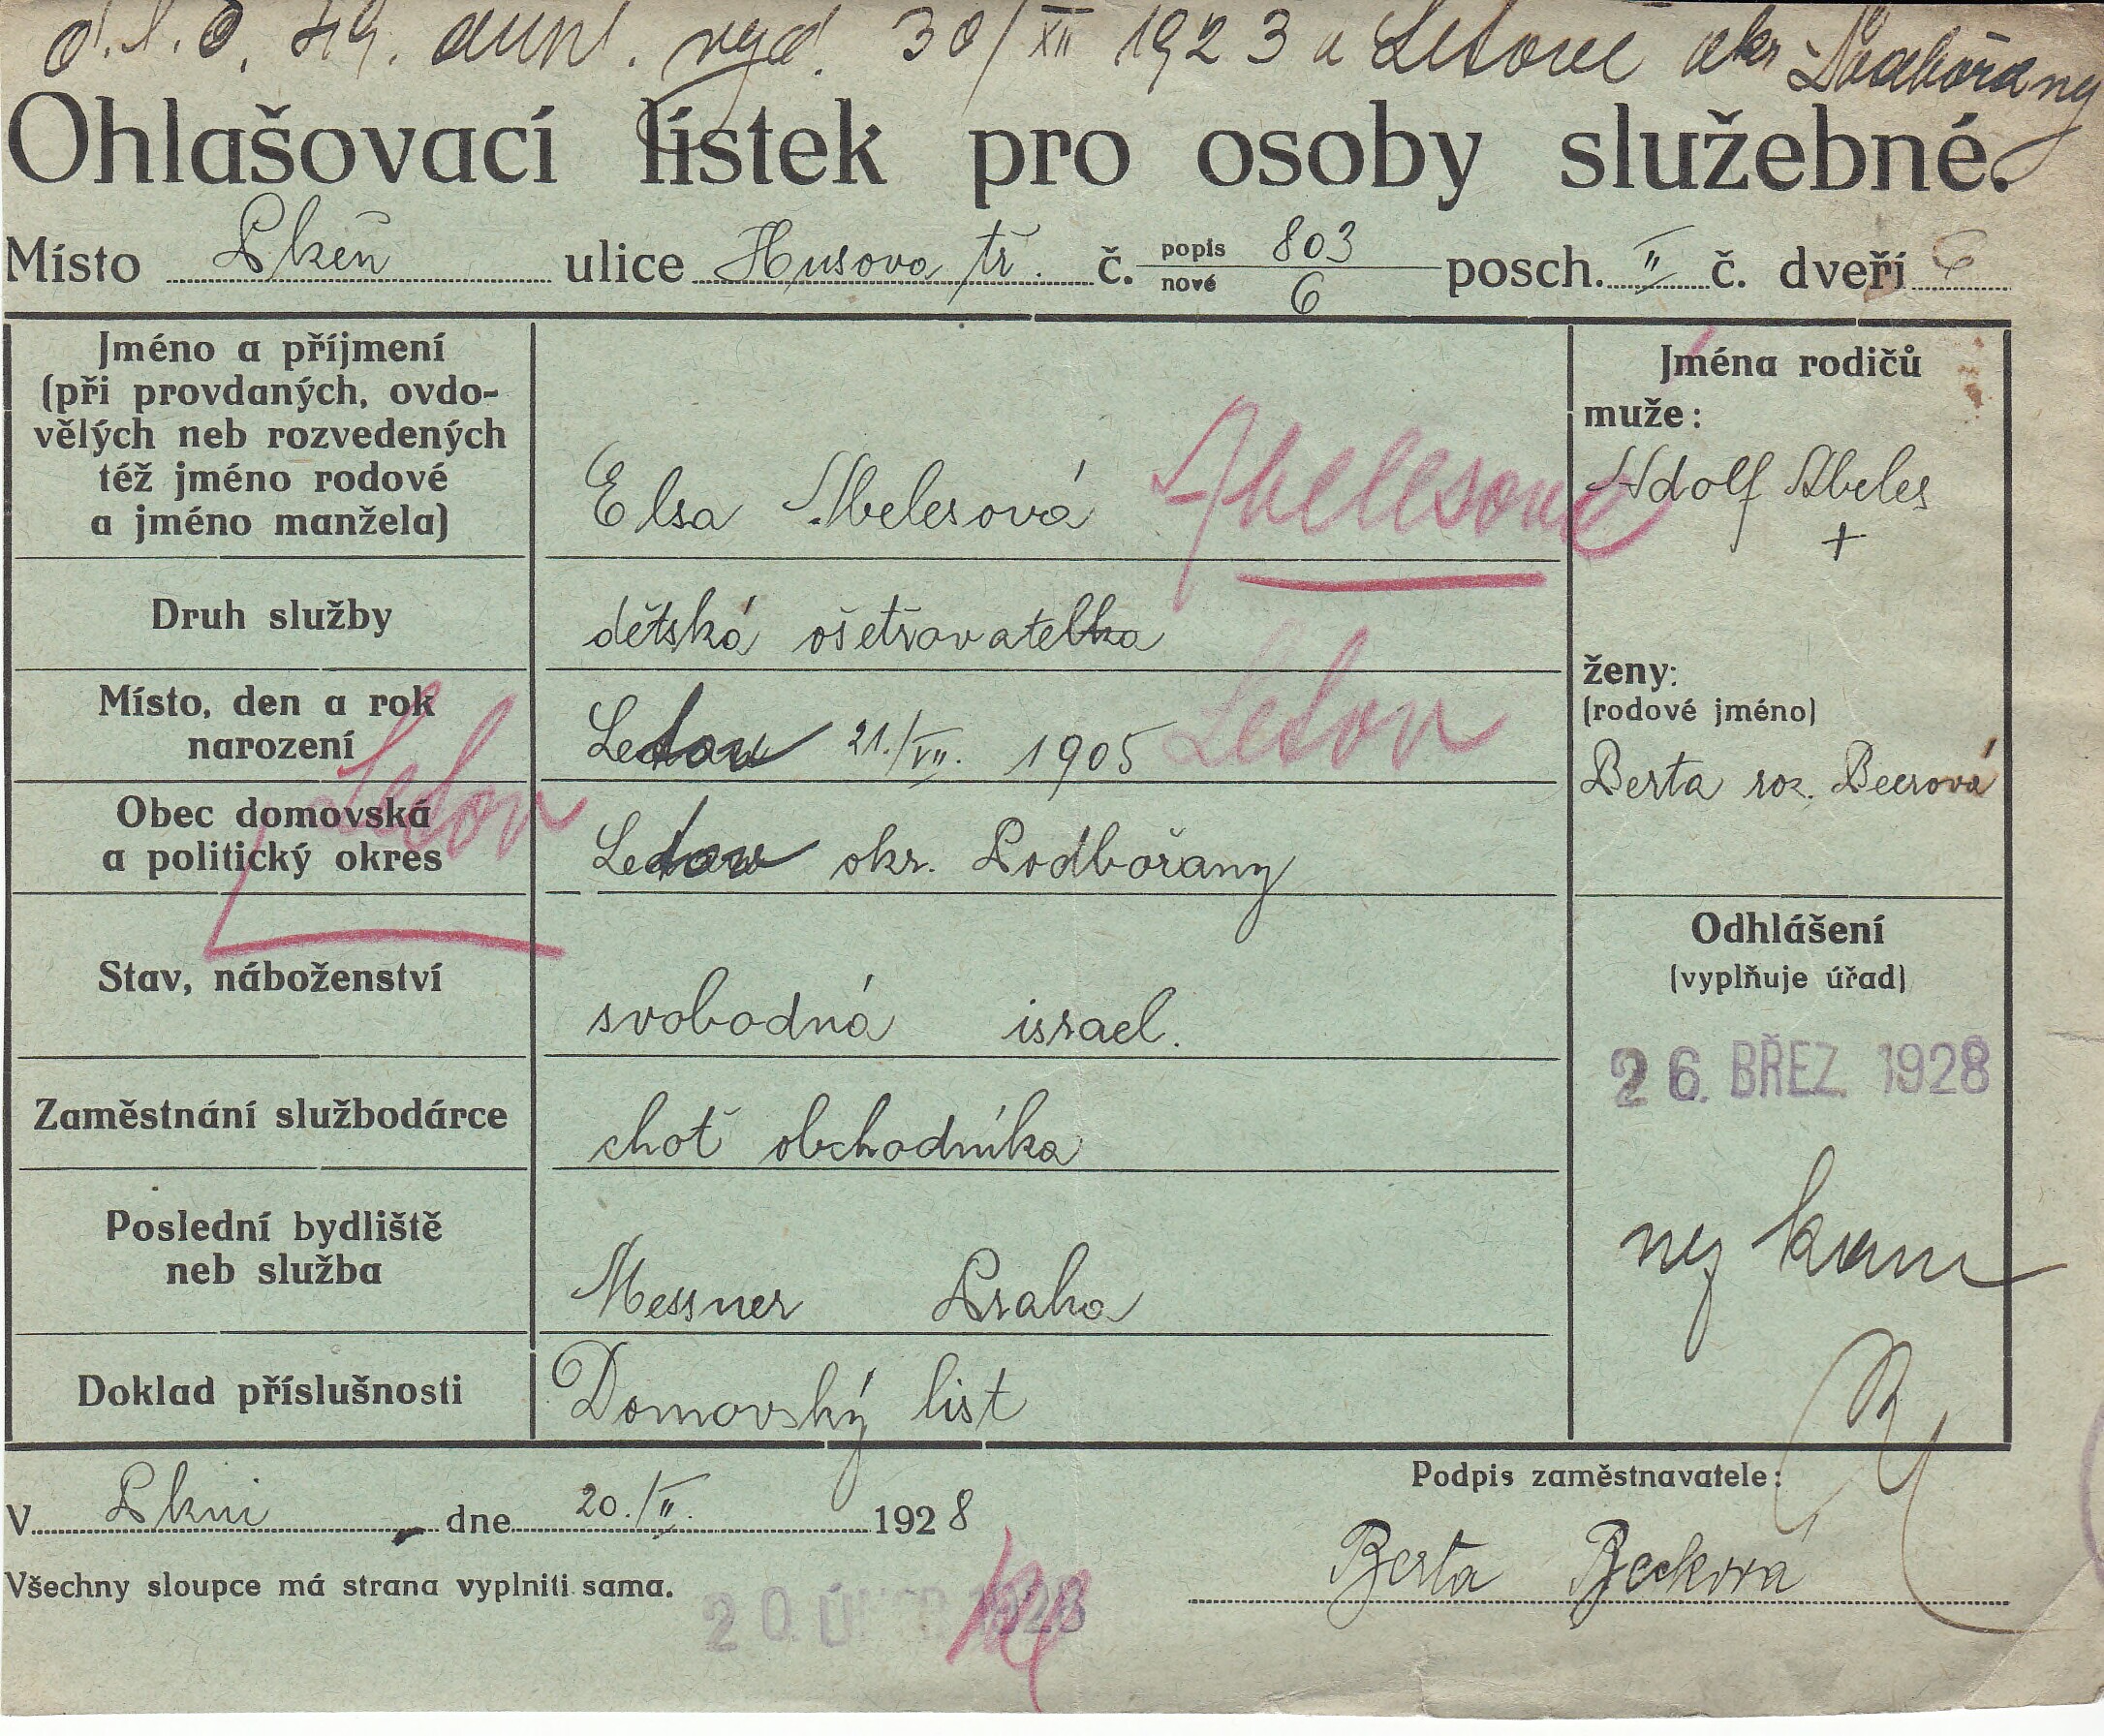 30/XII 1923 Letově okr. Podbořany
Ohlašovací lístek pro osoby služebné.
Místo Plzeň ulice Husova tř. č. popis 803 nové 6 posch. II č. dveří 6
Jméno a příjmení
(při provdaných, ovdo-
vělých neb rozvedených
též jméno rodové
a jméno manžela)
Elsa Abelesová Abelesová
Druh služby
dětská ošetřovatelka
Místo, den a rok
narození
Letov 21./VII. 1905 Letov
Letov
Obec domovská
a politický okres
Letov okr. Podbořany
Stav, náboženství
svobodná israel.
Zaměstnání službodárce
choť obchodníka
Poslední bydliště
neb služba
Messner Praha
Doklad příslušnosti
Domovský list
Jména rodičů
muže:
Adolf Abeles
+
ženy:
(rodové jméno)
Berta roz. Beerová
Odhlášení
(vyplňuje úřad)
26. BŘEZ. 1928
kam
V Plzni dne 20./II. 1928
Podpis zaměstnavatele:
Všechny sloupce má strana vyplniti sama.
Berta Becková
20. ÚNOR 1928